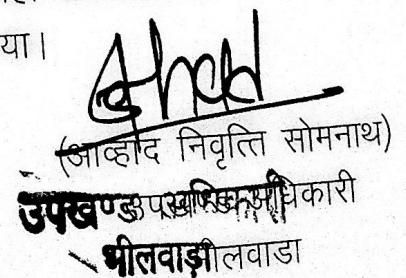 या।
(आव्होद निवृत्ति सोमनाथ)
उपखण्ड अधिकारी
भीलवाडा